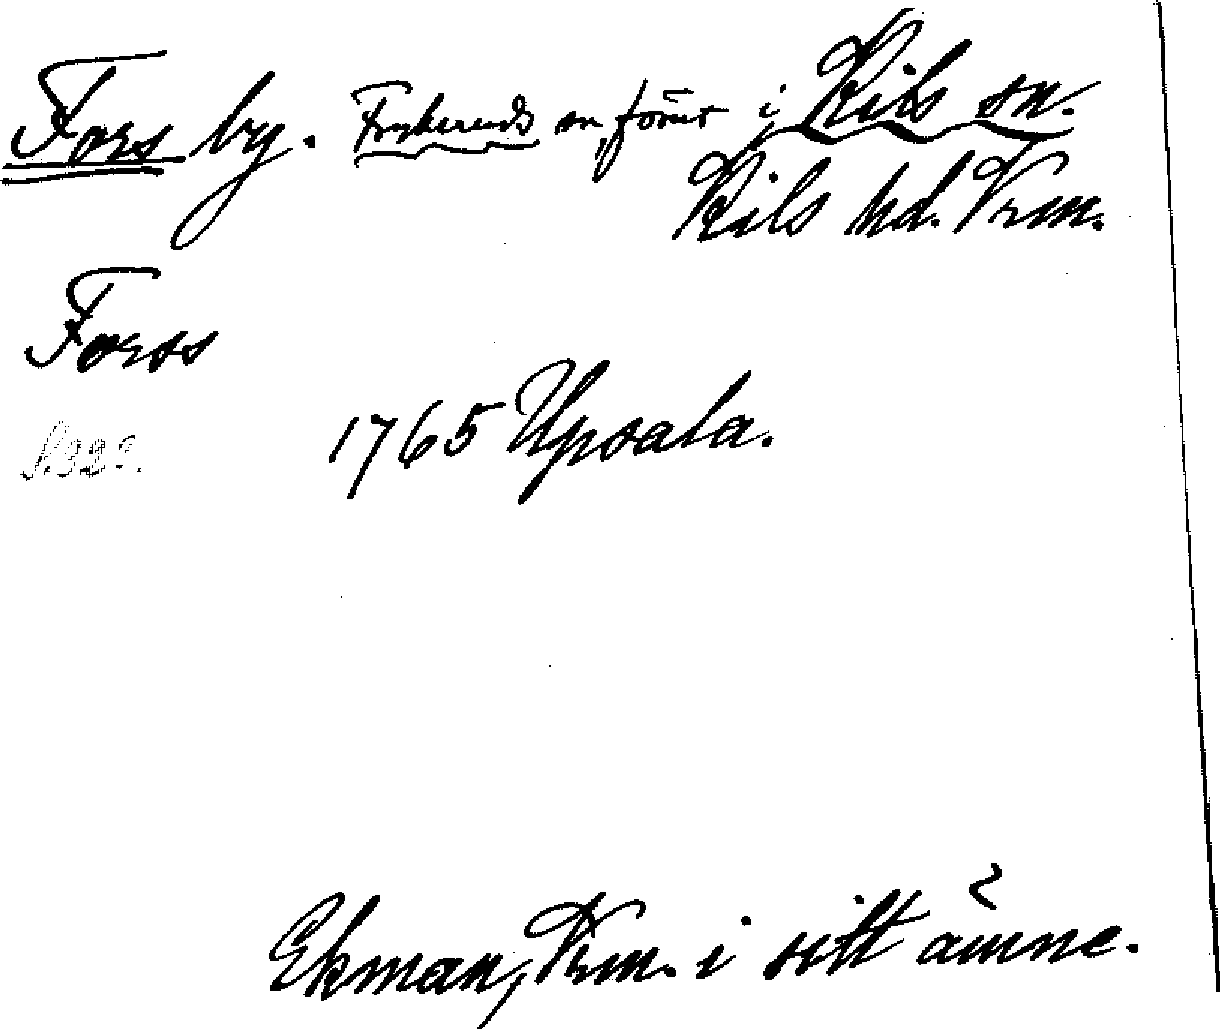 Fors by. Frykeruds sn förut i Kils sn.
Kils hd. Vrm.
Forss
1765 Upsala.
Ekman, Vrm. i sitt ämne.